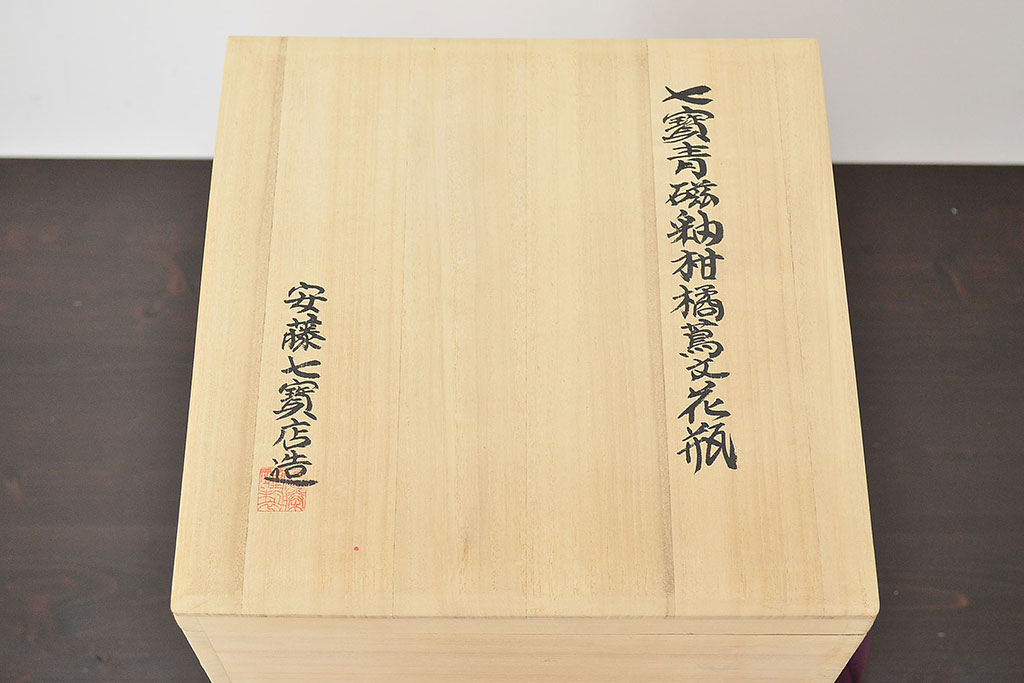 七寶青磁釉柑橘蔦文花瓶
安藤七寶店造